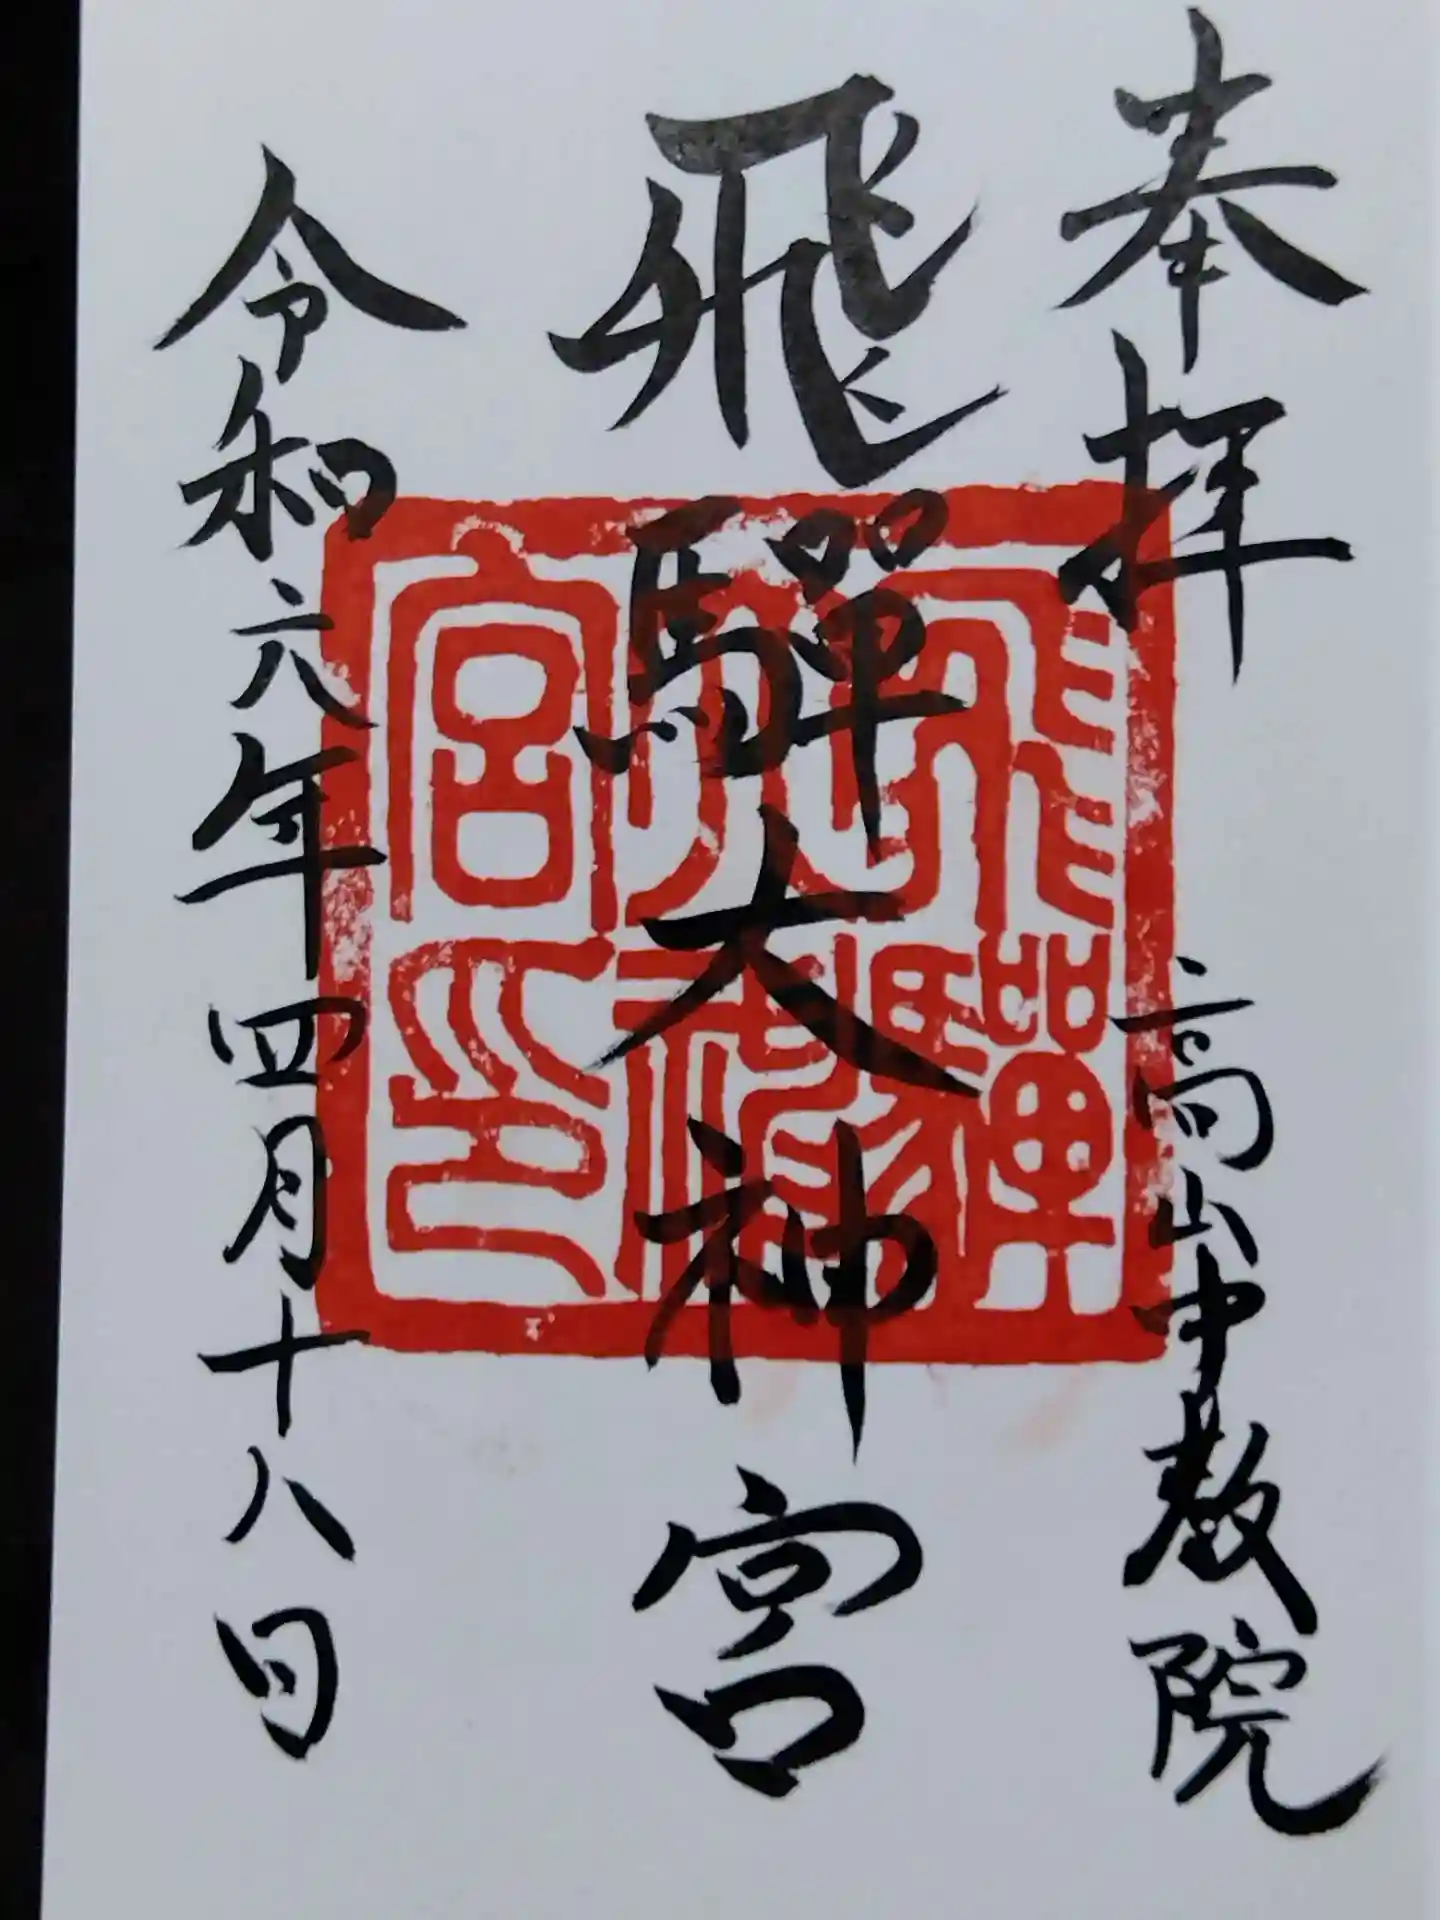 奉拝
高山中教院
飛驒大神宮
令和六年四月十八日
飛驒大神宮印